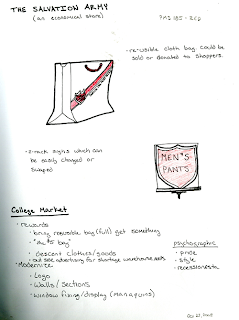 THE SALVATION ARMY
(an economical store)
- re-usible cloth bag could be
sold or donated to shoppers.
- z-rack signs which can
be easily changed or
swaped
MEN'S
PANTS
College Market
- rewards
• bring reusible bag (full) get something
• "do it bag"
• Descent clothes/goods
• out side advertising for startup warehouse sets
- Modernize
• Logo
• Walls / Sections
• window fixing/display (manaquins)
psychographic
• price
• style
• recessionista
Oct 27, 2008